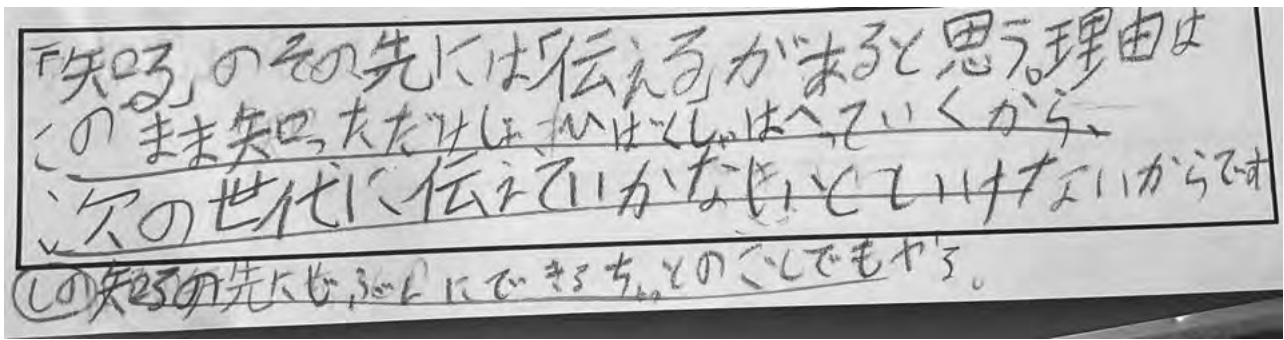 「知る」のその先には「伝える」があると思う。理由は
このまま知っただけじゃ、ひばくしゃはへっていくから、
次の世代に伝えていかないといけないからです
知るの先にじぶんにできるちょっとのことでもやる。